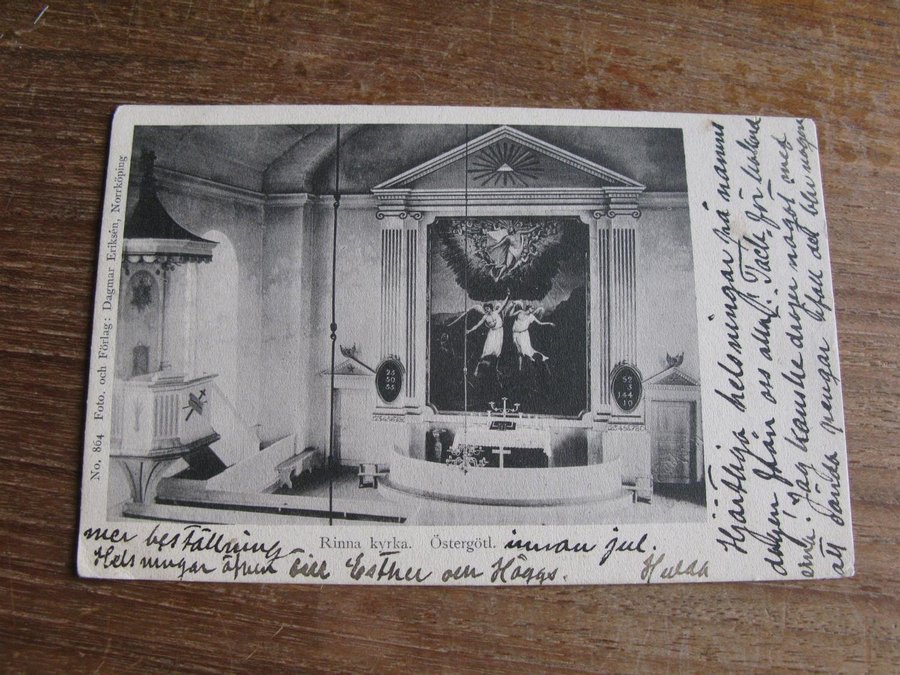 No. 864 Foto. och Förlag: Dagmar Eriksén, Norrköping
25
50
55
52
3
144
10
Rinna kyrka. Östergötl.
Hjärtliga helsningar på namns
dagen från oss alla! Tack för
jag kanske dröjer något med
att pengar
mer beställning innan jul.
Helsningar äfven till Esther och Höggs. Hulda